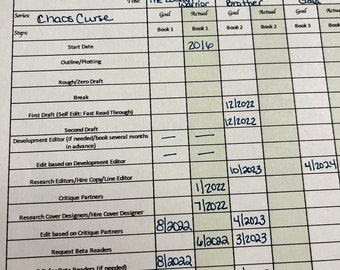 Title:
Warrior Brother
Series: Chaos Curse Goal Actual Goal Actual Goal
Steps: Book 1 Book 1 Book 2 Book 2 Book 3
Start Date 2016
Outline/Plotting
Rough/Zero Draft
Break
First Draft (Self Edit: Fast Read Through) 12/2022
Second Draft 12/2022
Development Editor (if needed/book several months in advance) — —
Edit based on Development Editor — —
Research Editors/Hire Copy/Line Editor 10/2023 4/2024
Critique Partners 1/2022
Research Cover Designers/Hire Cover Designer 7/2022
Edit based on Critique Partners 8/2022 4/2023
Request Beta Readers 6/2022 3/2023
Beta Readers (if needed) 8/2022